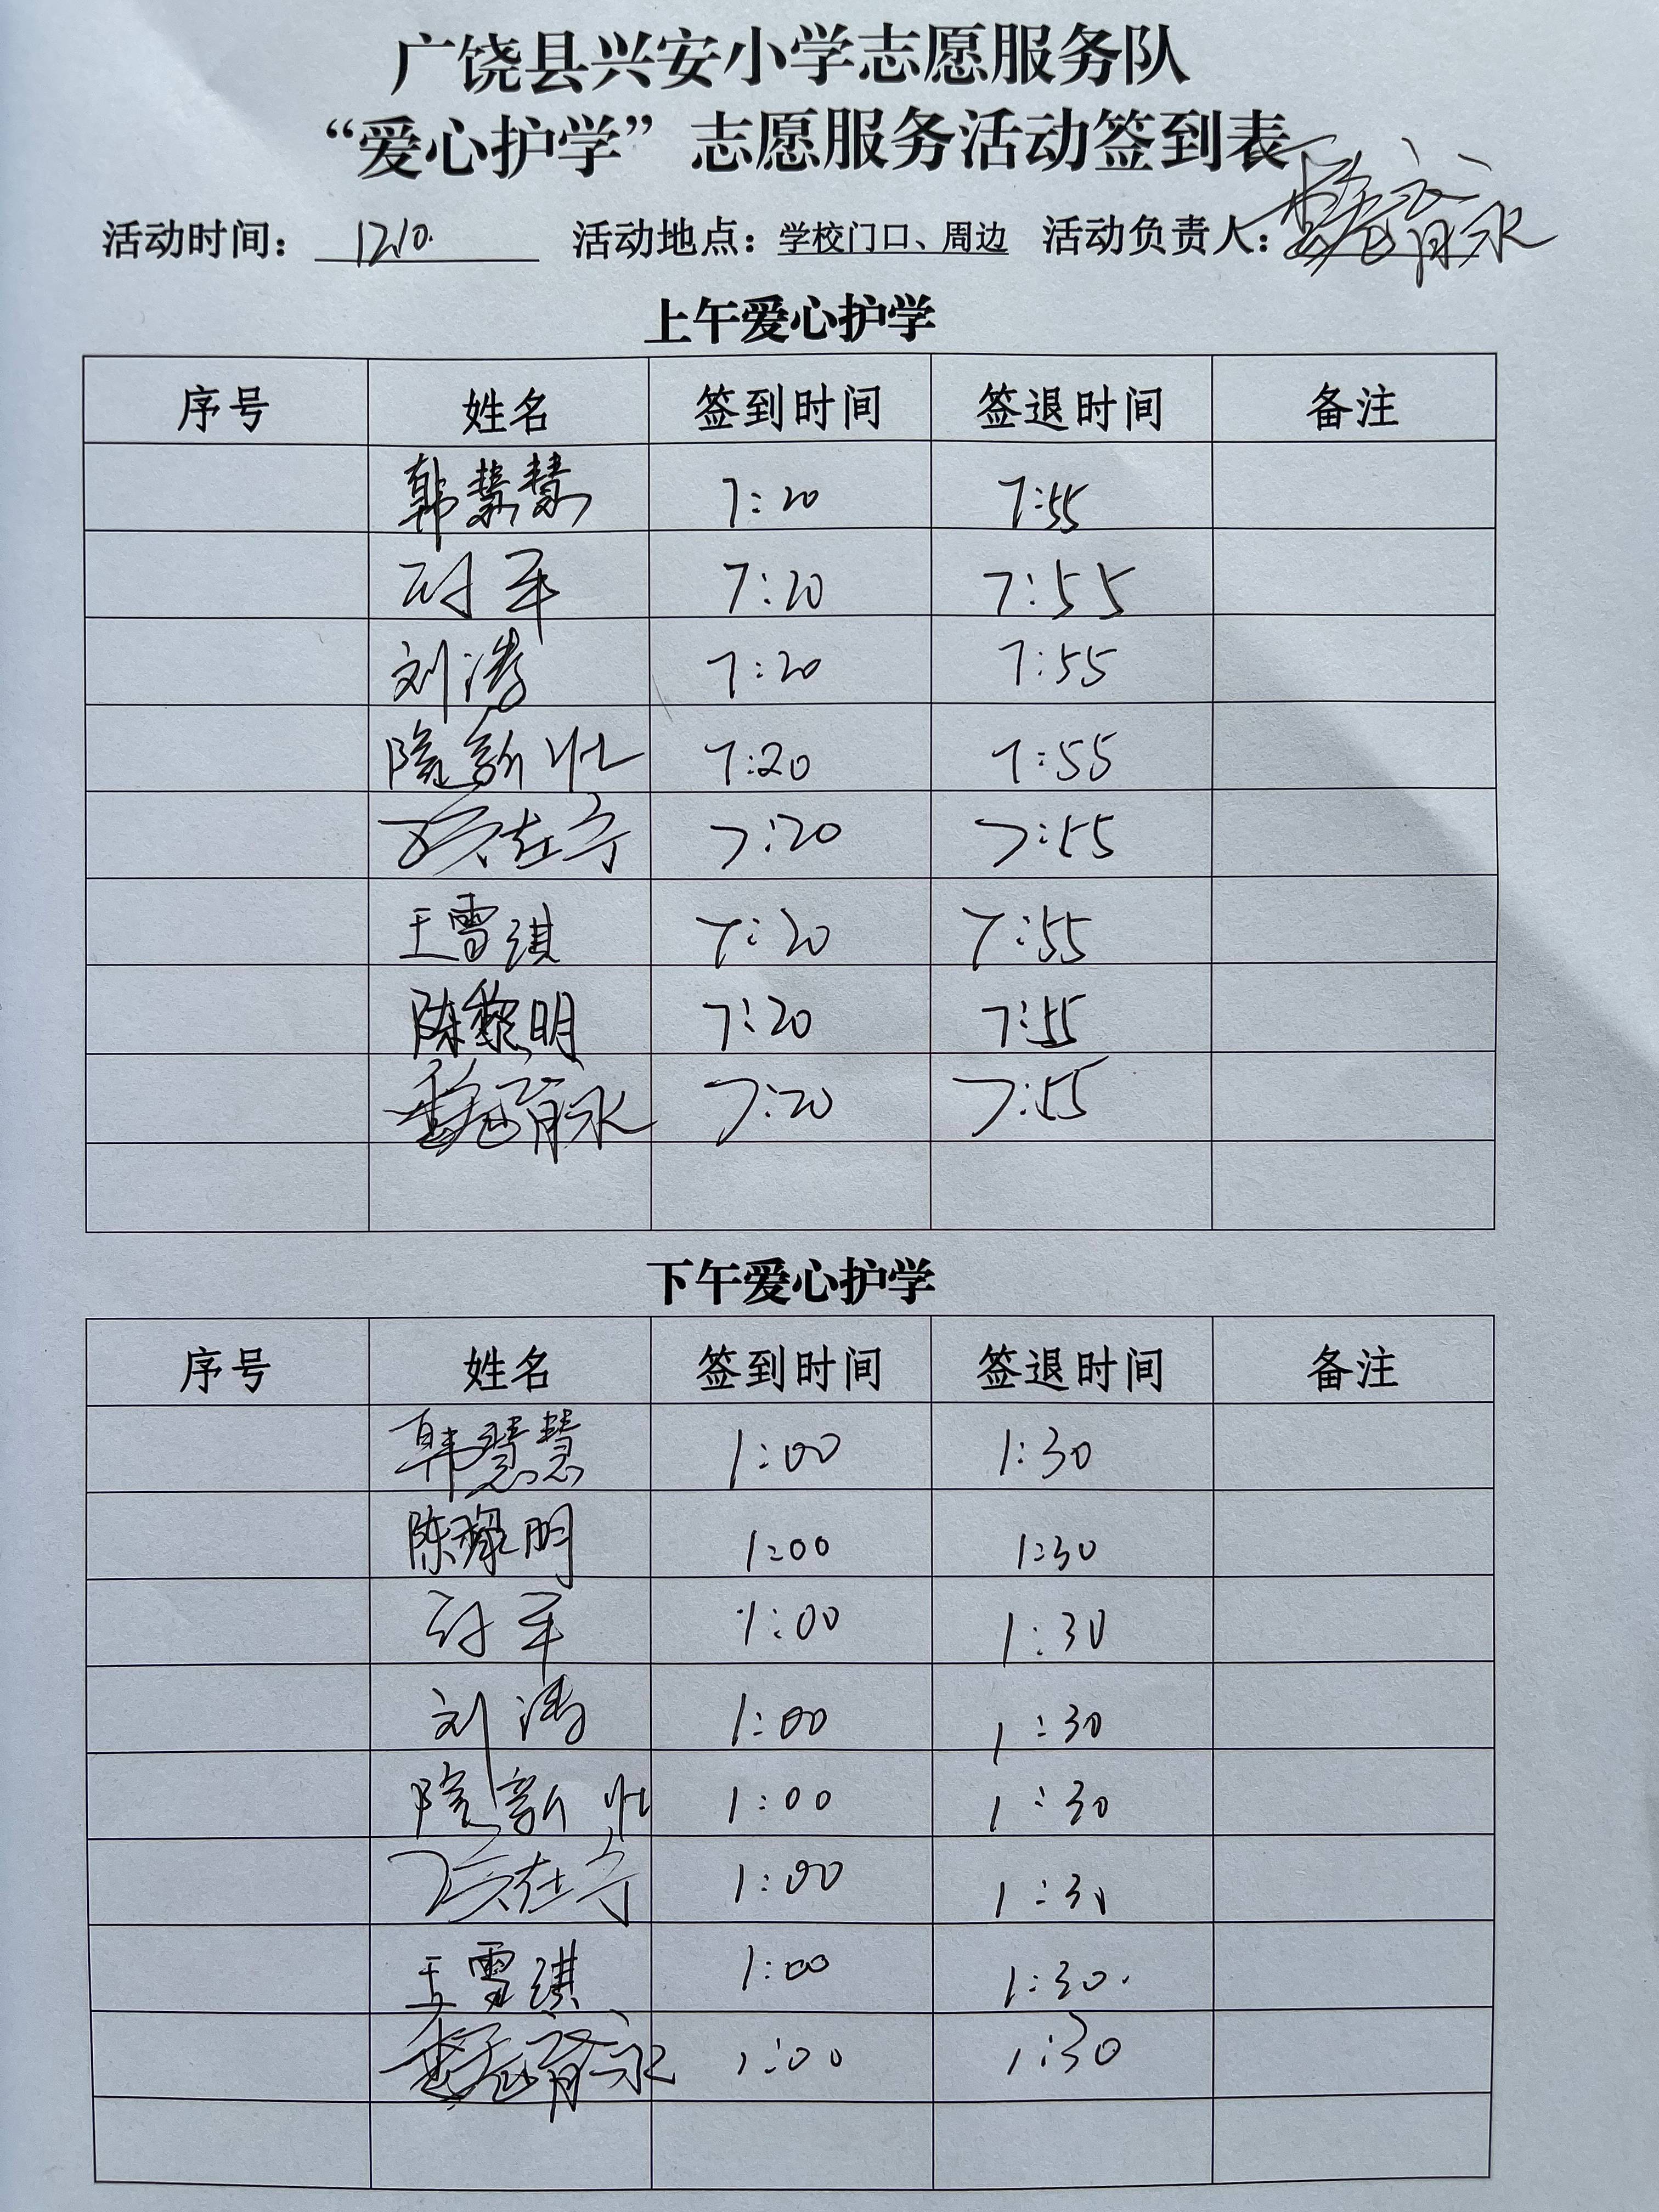 广饶县兴安小学志愿服务队
“爱心护学”志愿服务活动签到表
活动时间：1210. 活动地点：学校门口、周边 活动负责人：魏育永
上午爱心护学
序号 姓名 签到时间 签退时间 备注
韩慧慧 7:20 7:55
军 7:20 7:55
刘涛 7:20 7:55
隗新壮 7:20 7:55
在宁 7:20 7:55
王雪琪 7:20 7:55
陈黎明 7:20 7:55
魏育永 7:20 7:55
下午爱心护学
序号 姓名 签到时间 签退时间 备注
韩慧慧 1:00 1:30
陈黎明 1:00 1:30
军 1:00 1:30
刘涛 1:00 1:30
隗新壮 1:00 1:30
在宁 1:00 1:30
王雪琪 1:00 1:30.
魏育永 1:00 1:30